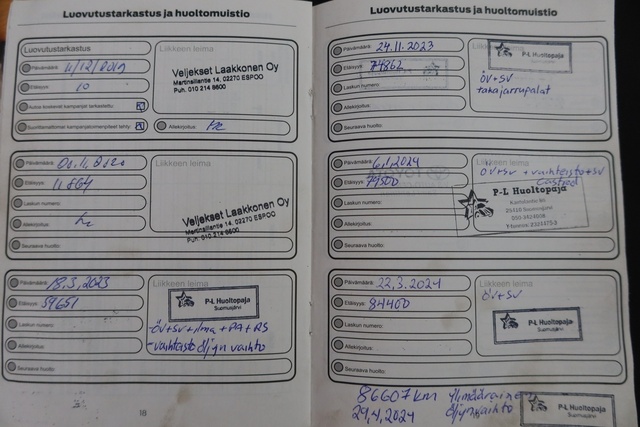 Luovutustarkastus ja huoltomuistio
Luovutustarkastus
Liikkeen leima
Päivämäärä: 11/12/2019
Etäisyys: 10
Veljekset Laakkonen Oy
Martinsillantie 14, 02270 ESPOO
Puh. 010 214 8600
Allekirjoitus:
Päivämäärä:
Liikkeen leima
Etäisyys: 11 864
Laskun numero:
Allekirjoitus:
Veljekset Laakkonen Oy
Martinsillantie 14, 02270 ESPOO
Puh. 010 214 8600
Seuraava huolto:
Päivämäärä: 18.3.2023
Liikkeen leima
Etäisyys: 59651
P-L Huoltopaja
Suomusjärvi
Laskun numero:
-ÖV+SV+ilma+PA+RS
Allekirjoitus:
-vaihteisto öljyn vaihto
Seuraava huolto:
18
Luovutustarkastus ja huoltomuistio
Päivämäärä: 24.11.2023
P-L Huoltopaja
Suomusjärvi
Etäisyys: 74862
Laskun numero:
ÖV+SV
takajarrupalat
Allekirjoitus:
Seuraava huolto:
Päivämäärä: 6.1.2024
Liikkeen leima
Etäisyys: 79500
ÖV+SV + vaihteisto+SV
Castrol
Laskun numero:
P-L Huoltopaja
25410 Suomusjärvi
Allekirjoitus:
Seuraava huolto:
Päivämäärä: 22.3.2024
Liikkeen leima
Etäisyys: 84400
ÖV+SV
Laskun numero:
P-L Huoltopaja
Suomusjärvi
Allekirjoitus:
Seuraava huolto:
86607 km ylimääräinen
29.4.2024 öljynvaihto
P-L Huoltopaja
Suomusjärvi